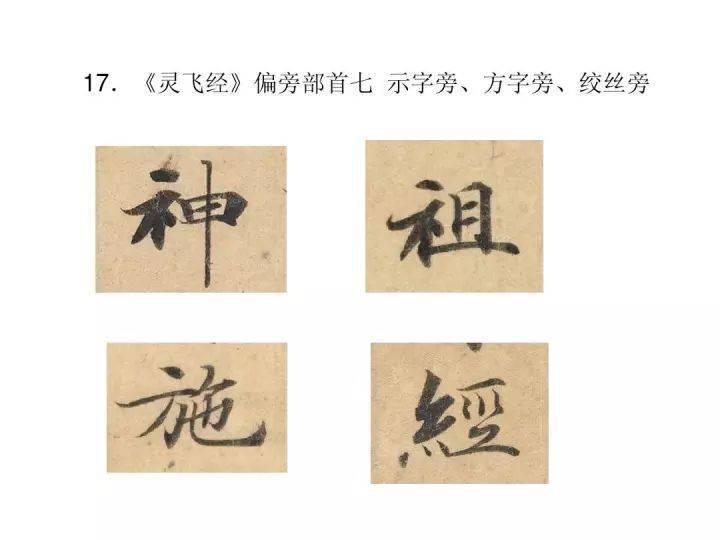 17. 《灵飞经》偏旁部首七 示字旁、方字旁、绞丝旁
神 祖
施 經